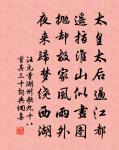 太皇太后過江都
遥指淮山似畫圖
抛却故家風雨外
夜來歸夢繞西湖
汪元量湖州歌九十八
首其三十詞典網集